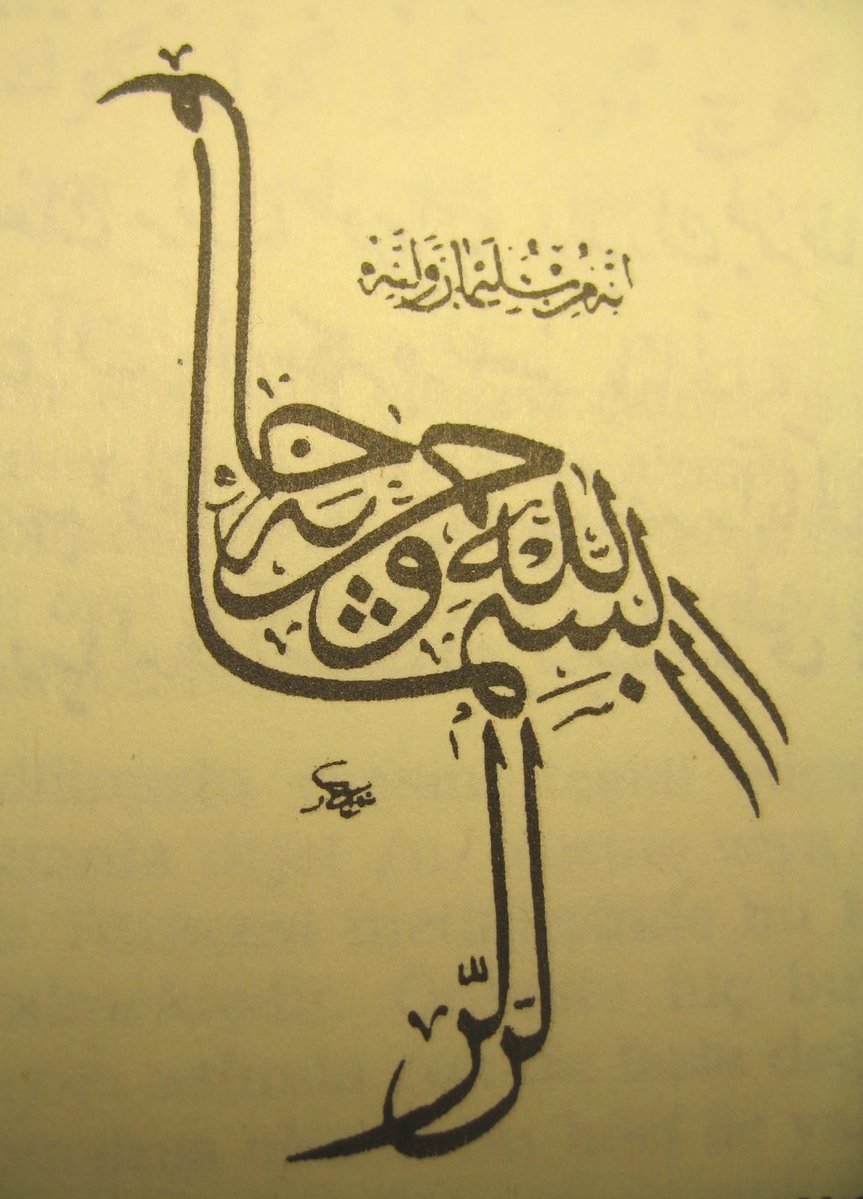 اِنَّهُ مِنْ سُلَيْمَانَ وَاِنَّهُ
بسم الله الرحمن الرحيم